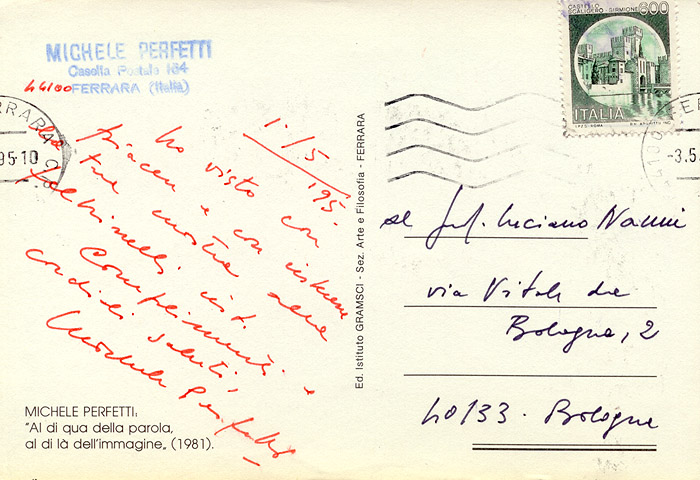 MICHELE PERFETTI
Casella Postale 164
44100 FERRARA (Italia)
FERRARA
95-10
1°/5/195
ho visto con
piacere e con
tua mostra alla
Feltrinelli
Complimenti e
cordiali saluti,
Michele Perfetti
MICHELE PERFETTI:
"Al di qua della parola,
al di là dell'immagine„ (1981).
Ed. Istituto GRAMSCI - Sez. Arte e Filosofia - FERRARA
CASTELLO
SCALIGERO - SIRMIONE
600
ITALIA
-3.5
al Prof. Luciano Nanni
via Vitale da
Bologna, 2
40133 - Bologna